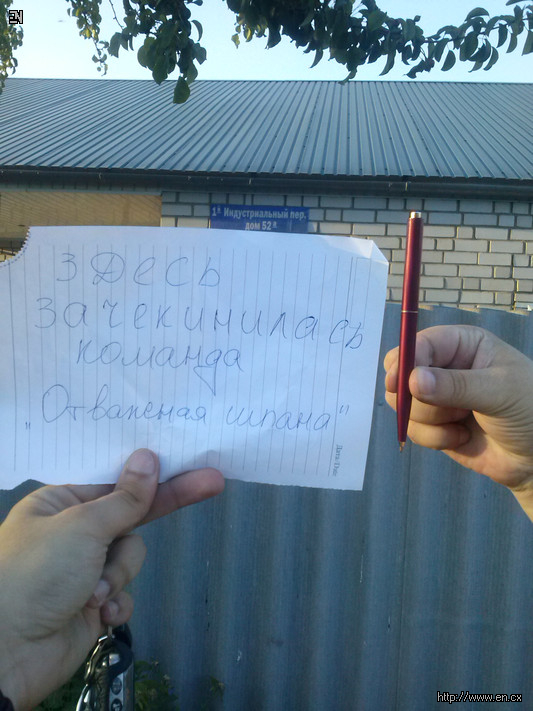 EN
1й Индустриальный пер.
дом 52
здесь
зачекинилась
команда
„Отважная шпана"
http://www.en.cx